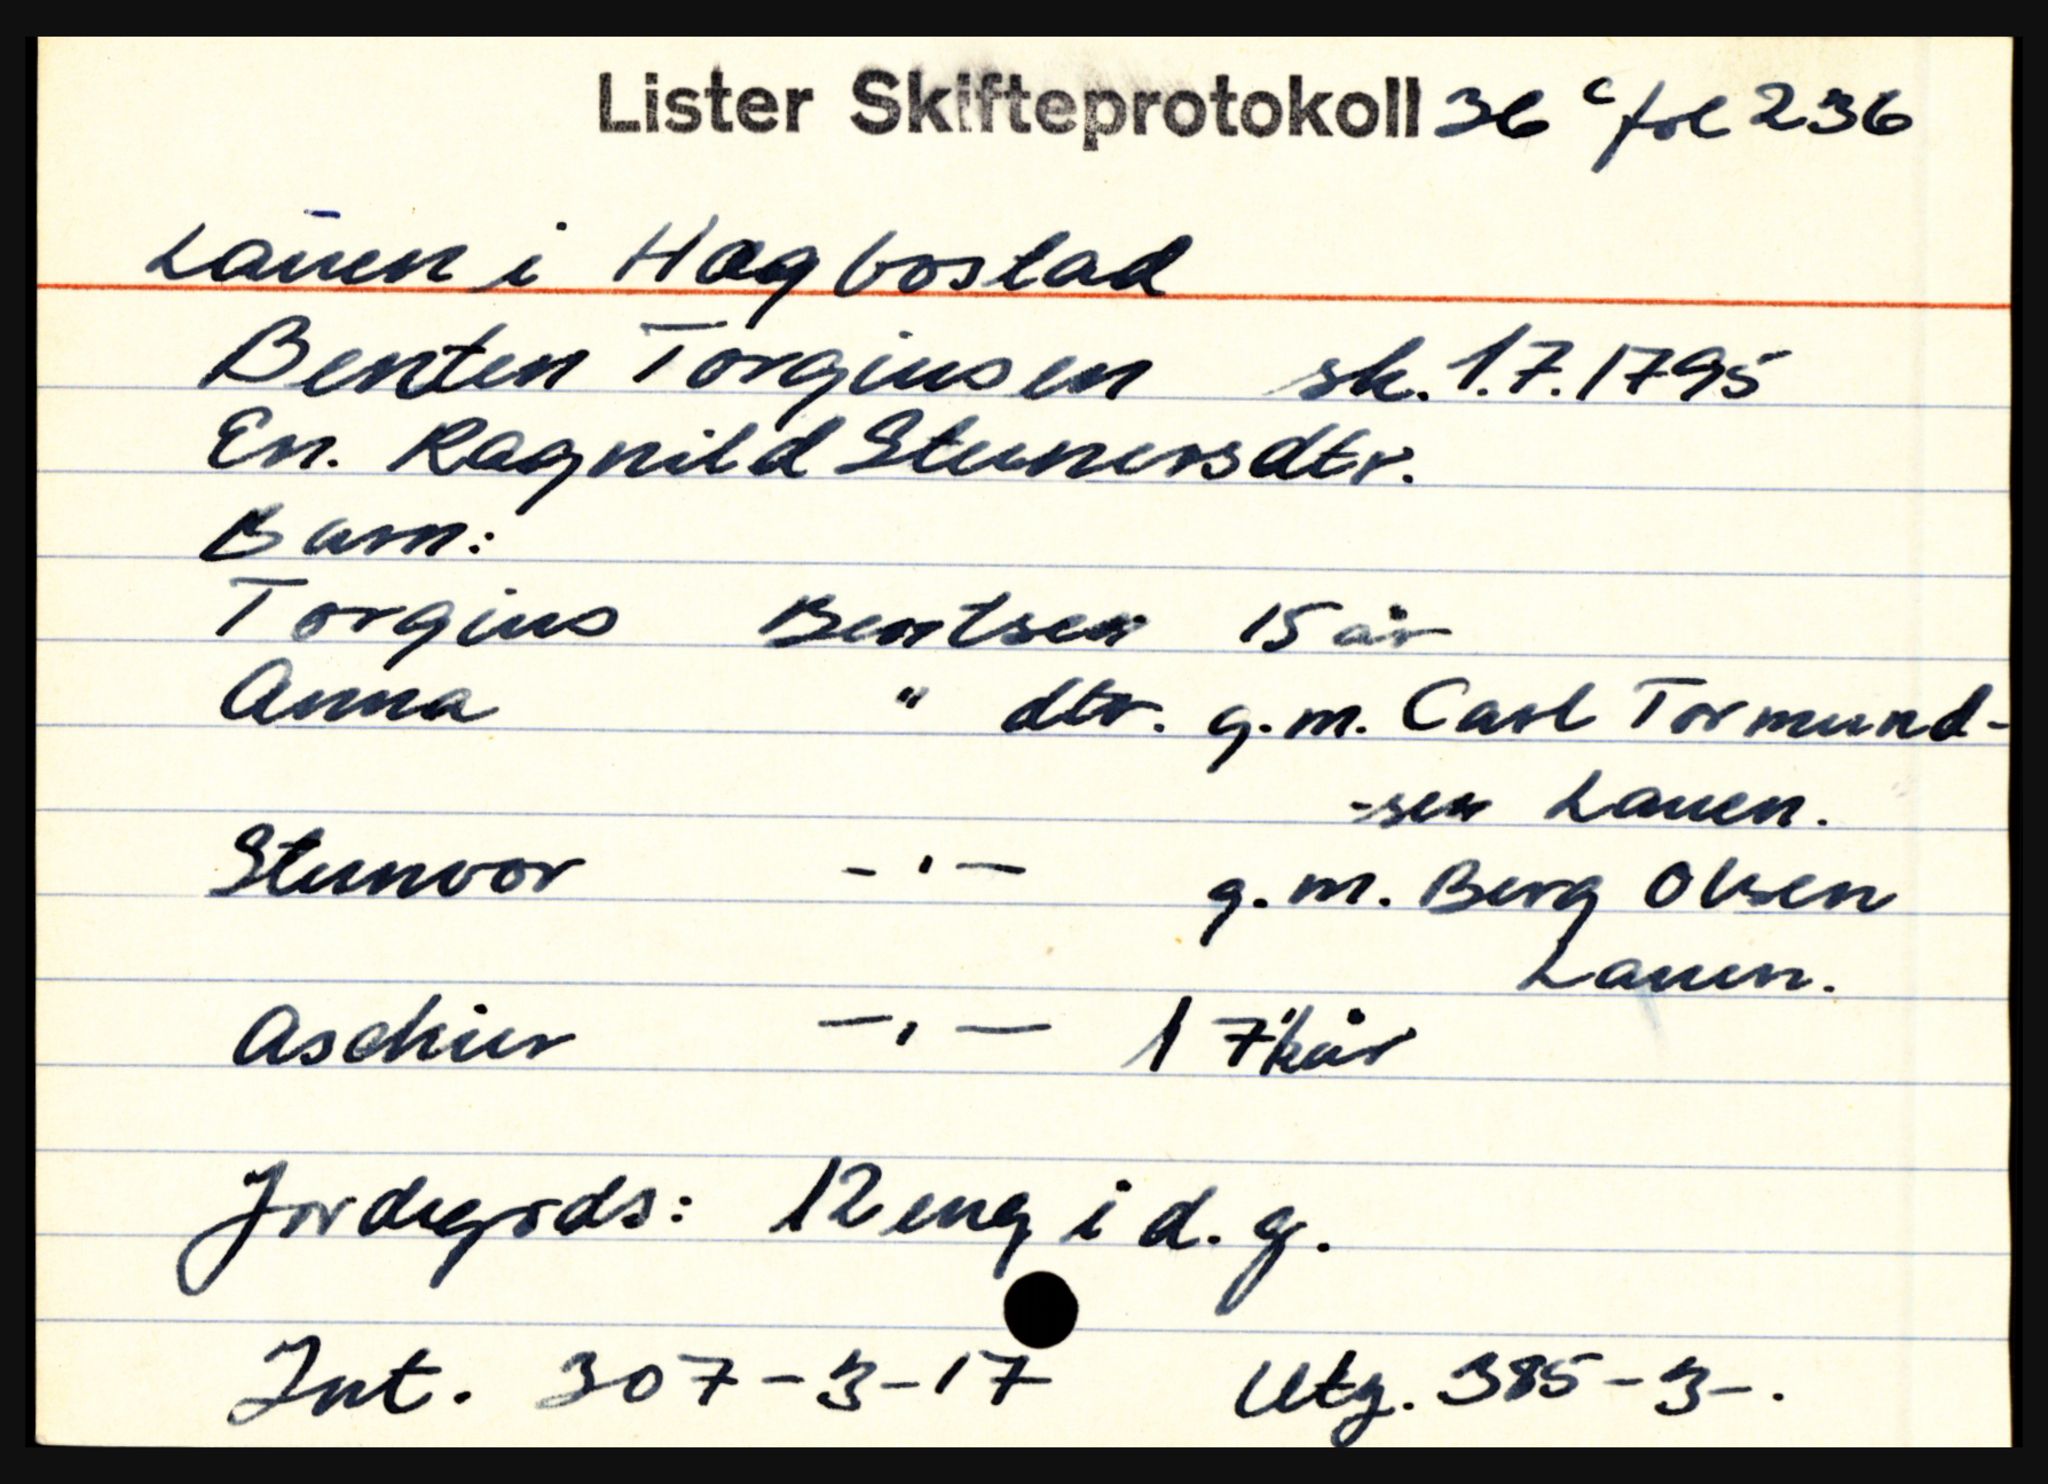 Lister Skifteprotokoll 36 c fol 236
Lauen i Hægbostad
Benten Torgiusen sk. 1.7.1795
En. Ragnild Stenersdtr.
Barn:
Torgius Bentsen 15 år
Anna " dtr. g.m. Carl Tormund-
-sen Lauen.
Stenvor -"- g.m. Berg Olsen
Lauen.
Aschier -"- 17 1/2 år
Jordegods: 12 eng i d. g.
Int. 307-3-17 Utg. 385-3-.